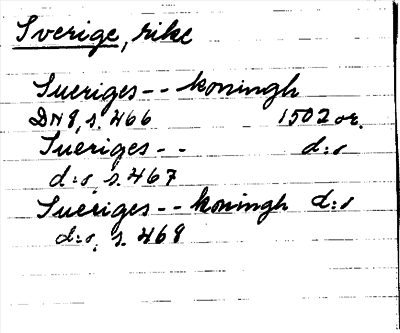 Sverige, rike
Sueriges -- koningh
DN 8, s. 466 1502 or.
Sueriges -- d:o
d:o, s. 467
Sueriges -- koningh d:o
d:o, s. 468